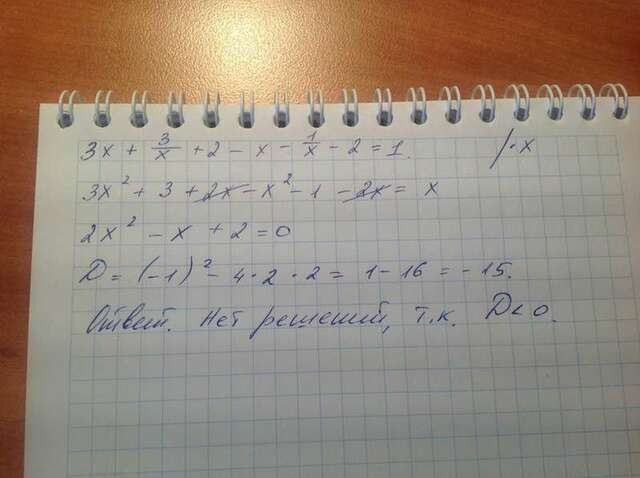 3x + 3/x + 2 - x - 1/x - 2 = 1. /·x
3x² + 3 + 2x - x² - 1 - 2x = x
2x² - x + 2 = 0
D = (-1)² - 4·2·2 = 1 - 16 = -15.
Ответ. Нет решений, т.к. D < 0.